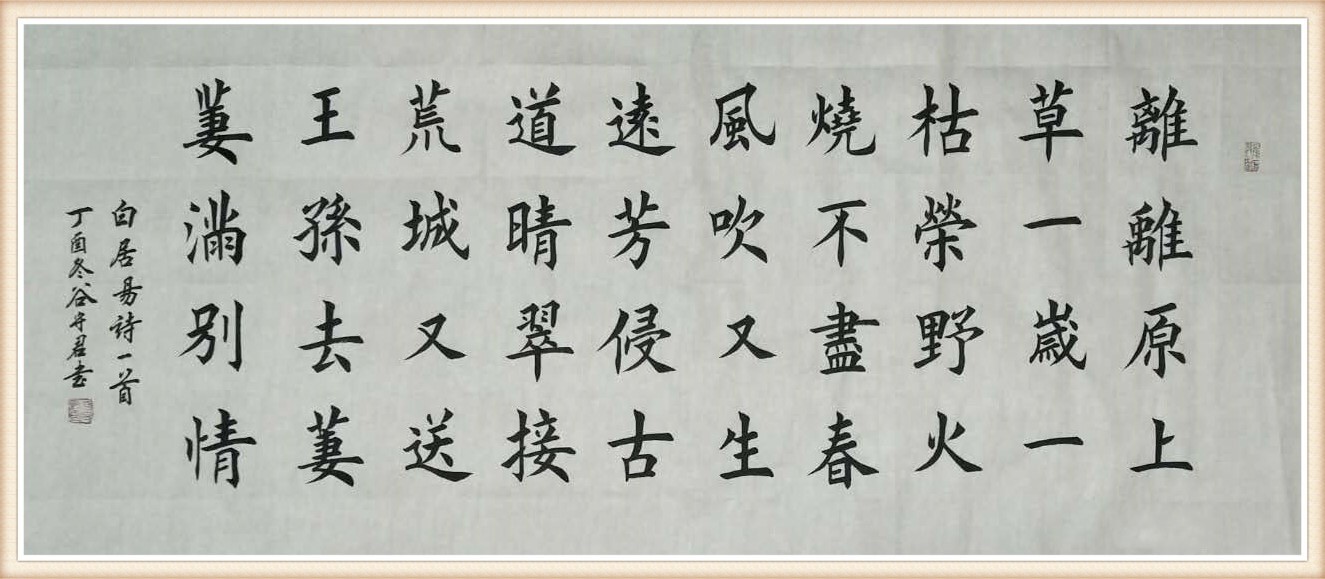 離離原上
草一歲一
枯榮野火
燒不盡春
風吹又生
遠芳侵古
道晴翠接
荒城又送
王孫去萋
萋滿別情
白居易詩一首
丁酉冬谷守君书